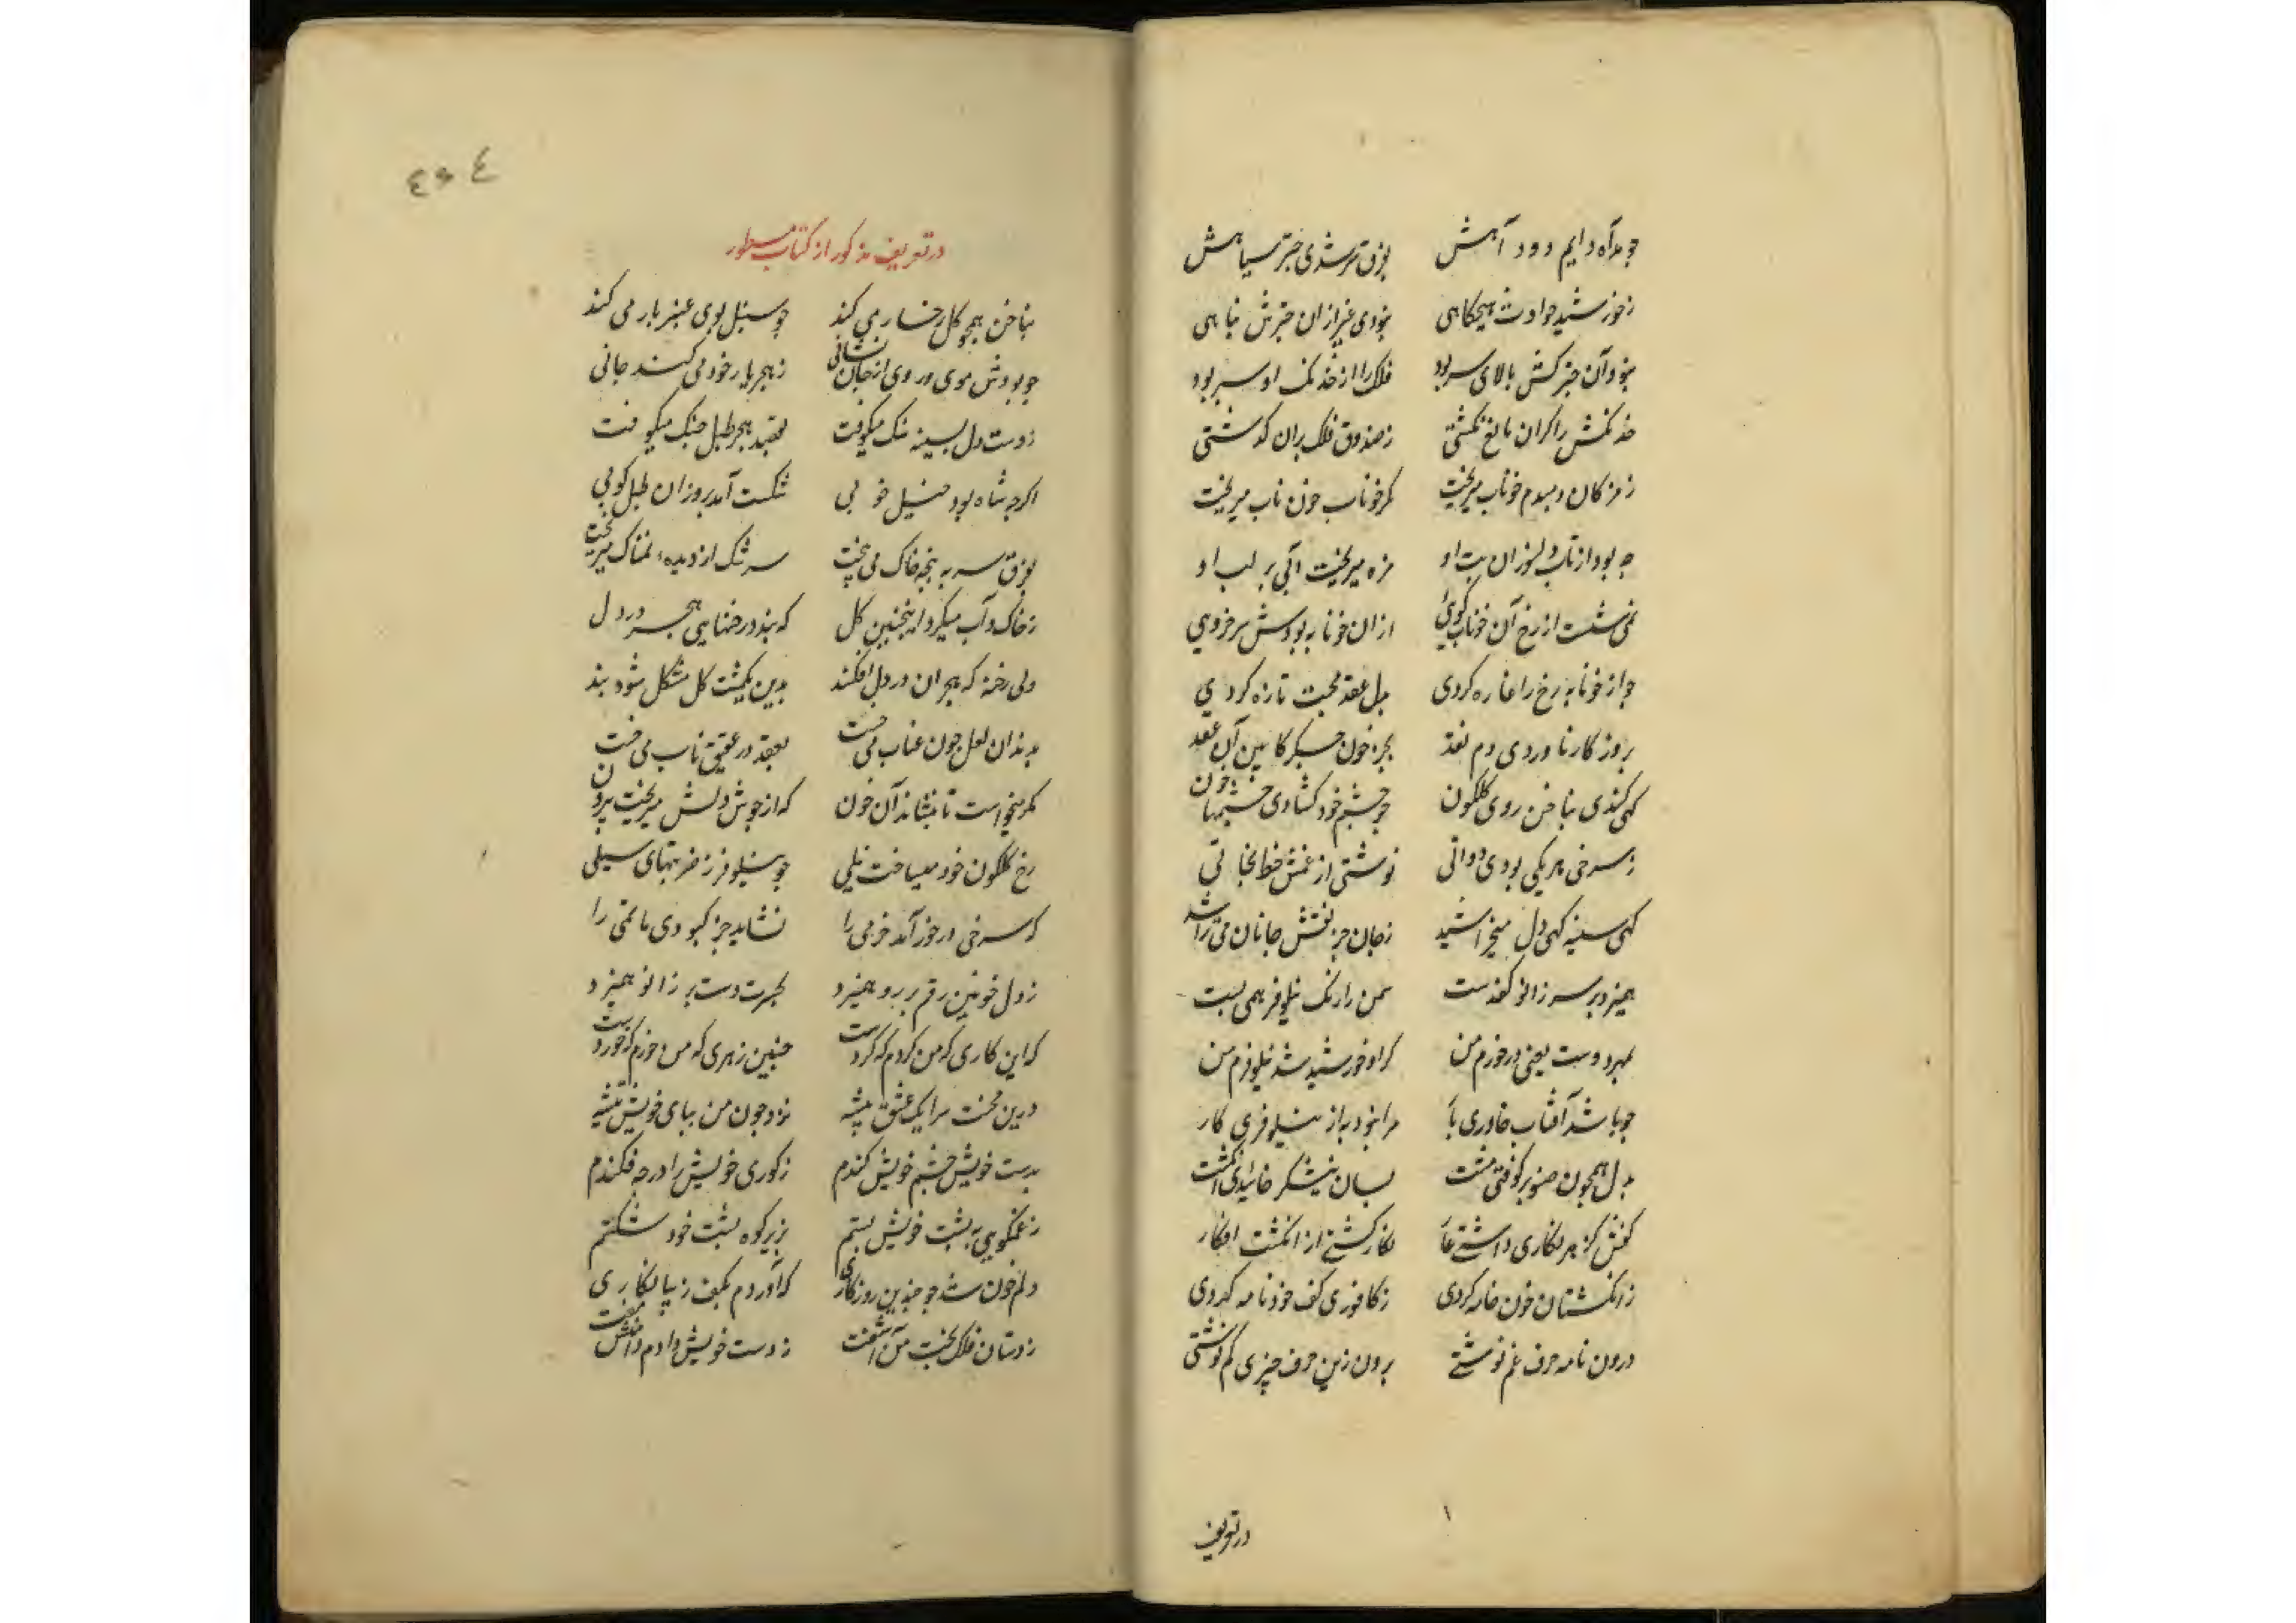 چو مدآه دایم دود آهش بفرق تر شدی چتر سیاهش
ز خورشید حوادث هیچگاهی نبودی غیر ازان چترش پناهی
نبود آن چتر کش بالای سر بود فلک را از خدنک او سپر بود
خدنکش را کر آن مانع نکشتی ز صندوق فلک بران کذشتی
ز مژکان دمبدم خوناب میریخت مکو خوناب خون ناب میریخت
چه بود از تاب دل سوزان تب او مژه میریخت آبی بر لب او
نمی شست از رخ آن خوناب کویی ازان خونابه بودش سرخرویی
چو از خونابه رخ را غازه کردی بدل عقد محبت تازه کردی
بروز کار ناوردی دم نقد بجز خون جکر کابین آن عقد
کهی کندی بناخن روی کلکون چو چشم خود کشادی چشمها خون
ز سرخی هر یکی بودی دواتی نوشتی از غمش خط نجاتی
کهی سینه کهی دل میخراشید ز جان جز نقش جانان می تراشید
همیزد بر سر زانو کف دست سمن را رنک نیلوفر همی بست
بمهر دوست یعنی در خورم من کر او خورشید شد نیلوفرم من
چو باشد آفتاب خاوری یار مرا نبود به از نیلوفری کار
بدل همچون صنوبر کوفتی مشت بسان نیشکر خاییدی انکشت
کفش کز هر نکاری داشتی عار نکارکشتی از انکشت افکار
ز انکشتان خون خامه کردی ز کافوری کف خود نامه کردی
درون نامه حرف غم نوشتی برون زین حرف چیزی کم نوشتی
در تعریف
٤٥٤
در تعریف مذکور از کتاب مسطور
بناخن همچو کل رخسار می کند چو سنبل بوی عنبر بار می کند
چو بودش موی و روی از جان نشانی ز هجر یار خود می کند جانی
ز دست دل بسینه سنک میکوفت بقصد هجر طبل جنک میکوفت
اکرچه شاه بود خیل خوبی شکست آمد بروزان طبل کوبی
بفرق سر به پنجه خاک می بیخت سرشک از دیده نمناک میریخت
ز خاک و آب میکرد اینچنین کل که بندد رخنهایی هجر در دل
ولی رخنه که هجران در دل افکند بدین یکمشت کل مشکل شود بند
بدندان لعل چون عناب می خست بعقد در عقیق ناب می خست
مکر میخواست تا بنشاند آن خون که از جوش دلش میریخت بیرون
رخ کلکون خود میساخت نیلی چو نیلوفر ز ضربتهای سیلی
که سرخی در خور آمد خرمی را نشاید جز کبودی ماتمی را
ز دل خونین رقم بر رو همیزد بحسرت دست بر زانو همیزد
که این کاری که من کردم که کردست چنین زهری که من خوردم که خوردست
درین محنت سرا یک عشق پیشه نزد چون من بپای خویش تیشه
بدست خویش چشم خویش کندم ز کوری خویش را در چه فکندم
ز غم کوهی به پشت خویش بستم بزیر کوه پشت خود شکستم
دلم خون شد چو چندین روزکاری که آوردم بکف زیبا نکاری
ز دستان فلک بخت من آشفت ز دست خویش دادم دامنش مفت